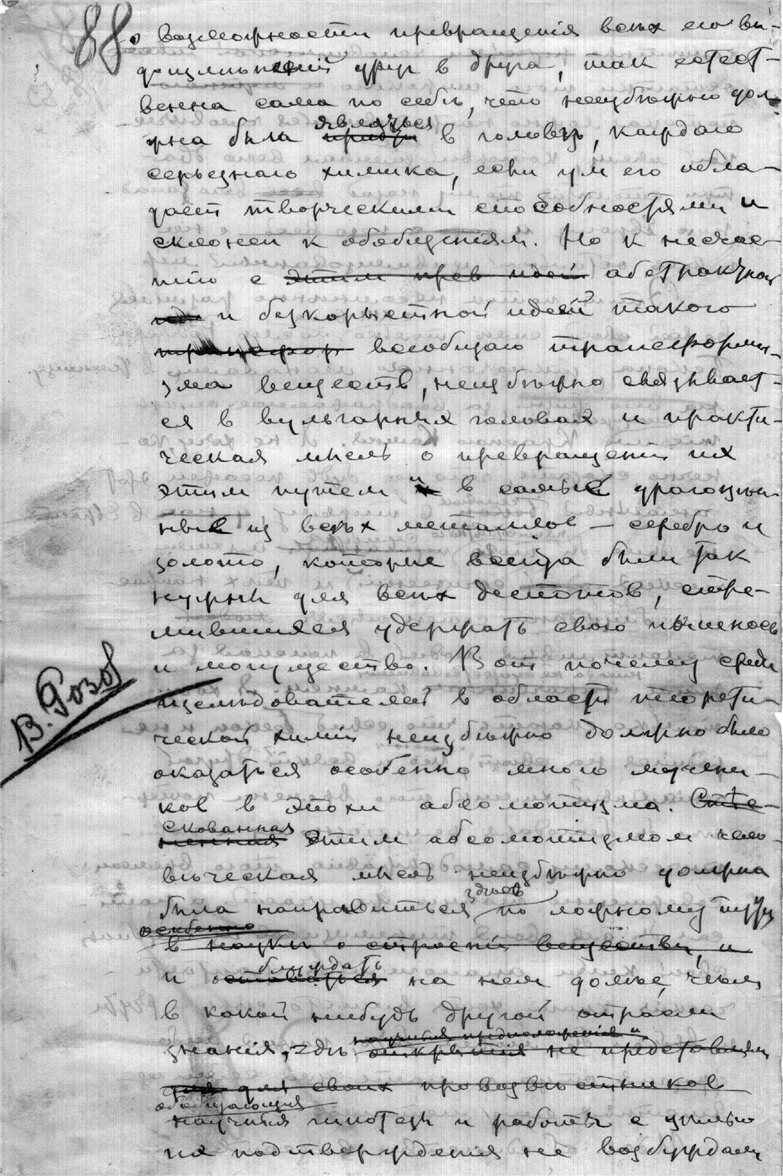 88
о возможности превращенія всѣхъ его ви-
другъ в друга, так естест-
венна сама по себѣ, что неизбѣжно дол-
жна была являться в головѣ, каждаго
серьезнаго химика, если ум его обла-
дает творческими способностями и
склонен к обобщеніям. Но к несчас-
тью с этим абстрактной
и безкорыстной идеей такого
всеобщаго трансформи-
зма веществ, неизбѣжно связывает-
ся в вульгарных головах и практи-
ческая мысль о превращеніи их
этим путем и в самые драгоцѣн-
ные из всѣх металлов — серебро и
золото, которые всегда были так
нужны для всѣх деспотов, стре-
мившихся удержать свою пышность
и могущество. Вот почему среди
В. Розов
изслѣдователей в области теорети-
ческой химіи неизбѣжно должно было
оказаться особенно много мучени-
ков в эпохи абсолютизма. Стѣс-
скованная
ненная этим абсолютизмом чело-
вѣческая мысль неизбѣжно должна
была направиться здѣсь по ложному пути
особенно
в науки о строеніи вещества, и
блуждать
и оставаться на нем долѣе, чѣм
в какой нибудь другой отрасли
знанія, гдѣ открытія не представляли
для своих провозвѣстников
обобщающія
научныя гипотезы и работы с цѣлью
их подтвержденія не возбуждали